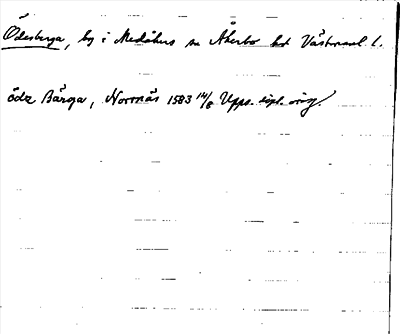 Ödesberga, by i Medåkers sn Åkerbo hd Västmanl. l.
öde Bärga, Norrnäs 1583 14/8 Upps. dipl. orig.